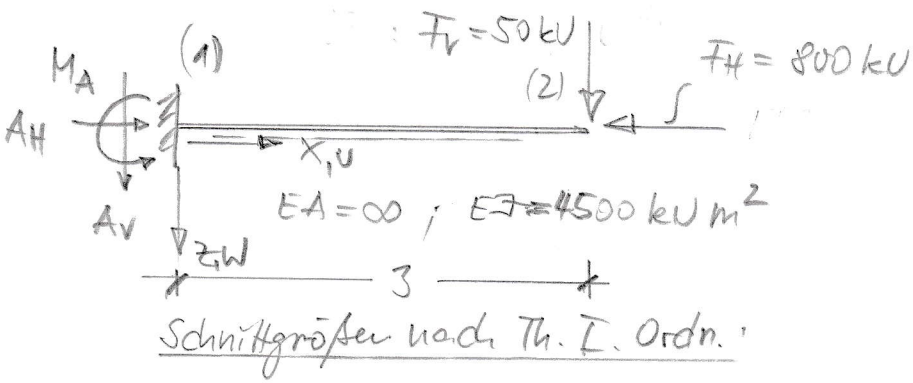 (1)
F_V = 50 kN
F_H = 800 kN
M_A
(2)
A_H
x, u
A_V
EA = ∞ ; EI = 4500 kN m²
z, w
3
Schnittgrößen nach Th. I. Ordn. :